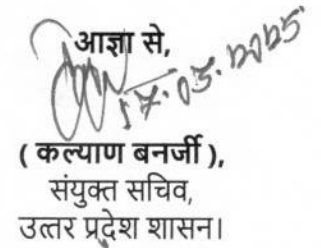 आज्ञा से,
17.03.2025
( कल्याण बनर्जी ),
संयुक्त सचिव,
उत्तर प्रदेश शासन।